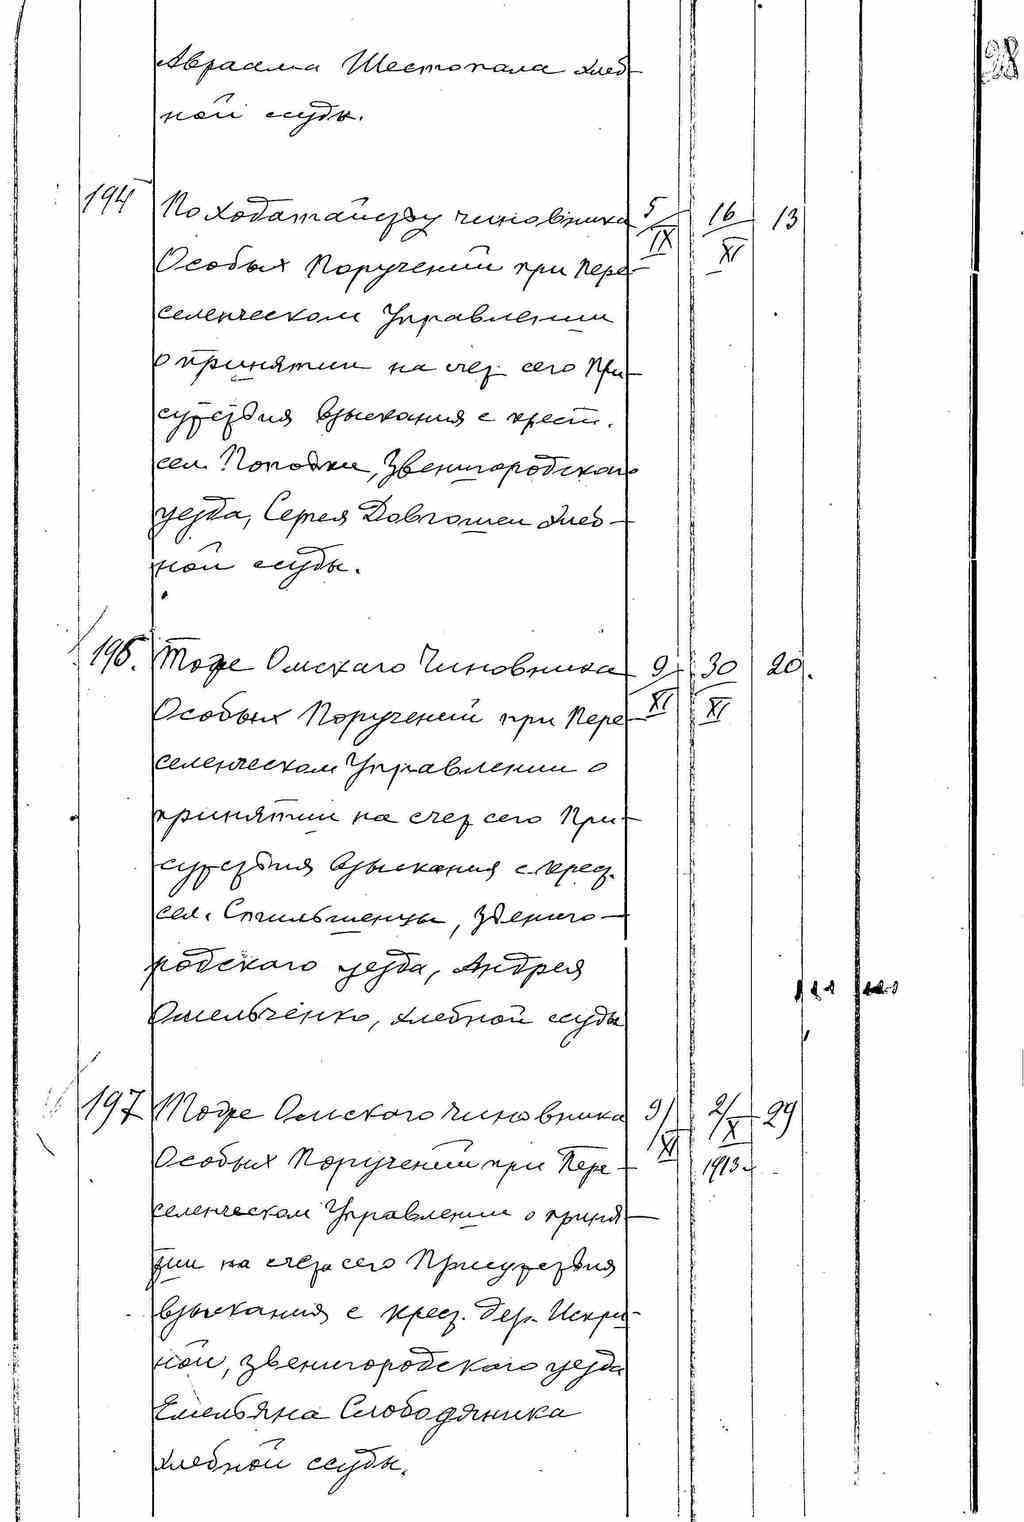 28
Авраама Шестопала хлеб-
ной ссуды.
194 По ходатайству чиновника 5/IX 16/XI 13
Особых Поручений при Пере-
селенческом Управлении
о принятии на счет сего При-
сутствия взыскания с крест.
сел. Попо​вки, Звенигородского
уезда, Сергея Довгошеи хлеб-
ной ссуды.
196. Тоже Омскаго Чиновника 9/XI 30/XI 20.
Особых Поручений при Пере-
селенческом Управлении о
принятии на счет сего При-
сутствия взыскания с крест.
сел. Стильшенцы, Звениго-
родского уезда, Андрея
Омельченко, хлебной ссуды
197 Тоже Омского Чиновника 9/XI 2/X 1913 29
Особых Поручений при Пере-
селенческом Управлении о приня-
тии на счет сего Присутствия
взыскания с крест. дер. Искри-
ной, Звенигородского уезда
Емельяна Слободяника
хлебной ссуды.